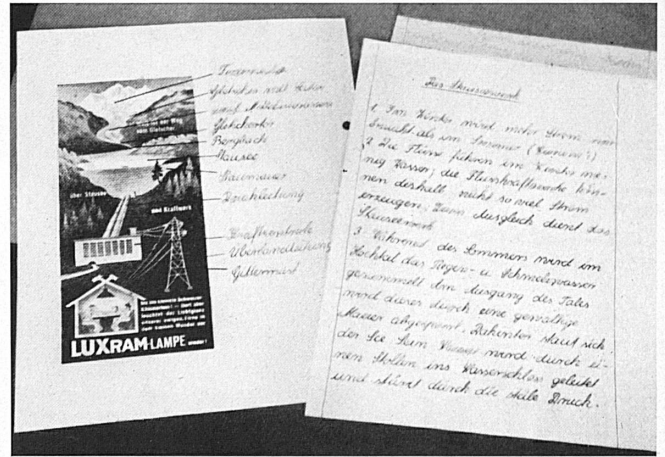 Firnmulde
Gletscher mit Seiten
und Mittelmoränen
Gletschertor
Bergbach
Stausee
Staumauer
Druckleitung
Kraftzentrale
Überlandleitung
Gittermast
der Weg
vom Gletscher
über Stausee
und Kraftwerk
LUXRAM-LAMPE
Das Stauseewerk
1. Im Winter wird mehr Strom ver-
braucht als im Sommer
2. Die Flüsse führen im Winter we-
nig Wasser; die Flusskraftwerke kön-
nen deshalb nicht so viel Strom
erzeugen. Zum Ausgleich dient das
Stauseewerk
3. Während des Sommers wird im
Hochtal das Regen- u. Schmelzwasser
gesammelt. Am Ausgang des Tales
wird dieses durch eine gewaltige
Mauer abgesperrt. Dahinter staut sich
der See. Sein Wasser wird durch ei-
nen Stollen ins Wasserschloss geleitet
und stürzt durch die steile Druck-